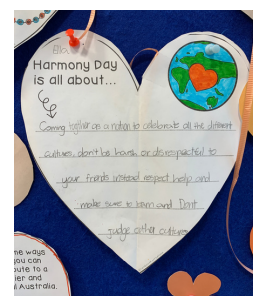 Ella
Harmony Day
is all about...
Coming together as a nation to collaborate all the different
cultures, don't be harsh or disrespectful to
your friends instead respect help and
make sure to learn and Dont
judge other cultures
me ways
you can
bute to a
ier and
l Australia.